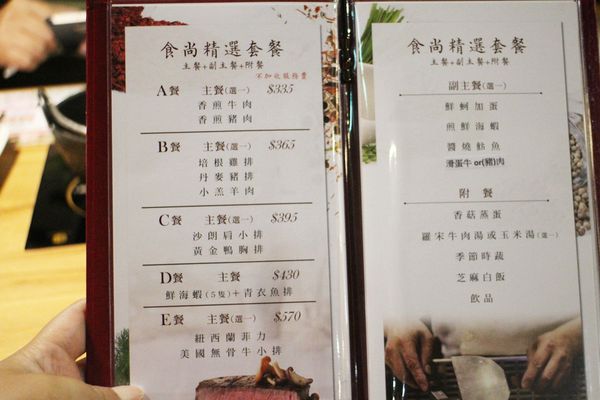 食尚精選套餐
主餐+副主餐+附餐
不加收服務費
A餐 主餐(選一) $335
香煎牛肉
香煎豬肉
B餐 主餐(選一) $365
培根雞排
丹麥豬排
小羔羊肉
C餐 主餐(選一) $395
沙朗肩小排
黃金鴨胸排
D餐 主餐 $430
鮮海蝦(5隻)+青衣魚排
E餐 主餐(選一) $570
紐西蘭菲力
美國無骨牛小排
食尚精選套餐
主餐+副主餐+附餐
副主餐(選一)
鮮蚵加蛋
煎鮮海蝦
醬燒鮕魚
滑蛋牛or(豬)肉
附餐
香菇蒸蛋
羅宋牛肉湯或玉米湯(選一)
季節時蔬
芝麻白飯
飲品